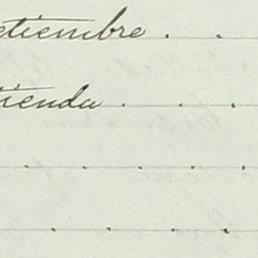 etiembre . .
tienda . . .
. . . . .
. . . .